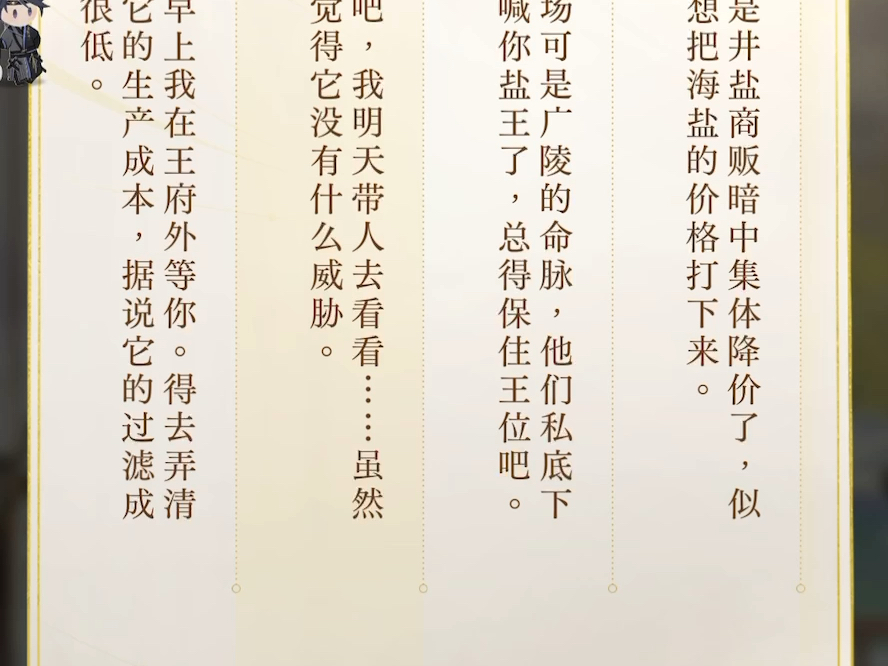 是井盐商贩暗中集体降价了，似
想把海盐的价格打下来。
场可是广陵的命脉，他们私底下
喊你盐王了，总得保住王位吧。
吧，我明天带人去看看……虽然
觉得它没有什么威胁。
早上我在王府外等你。得去弄清
它的生产成本，据说它的过滤成
很低。